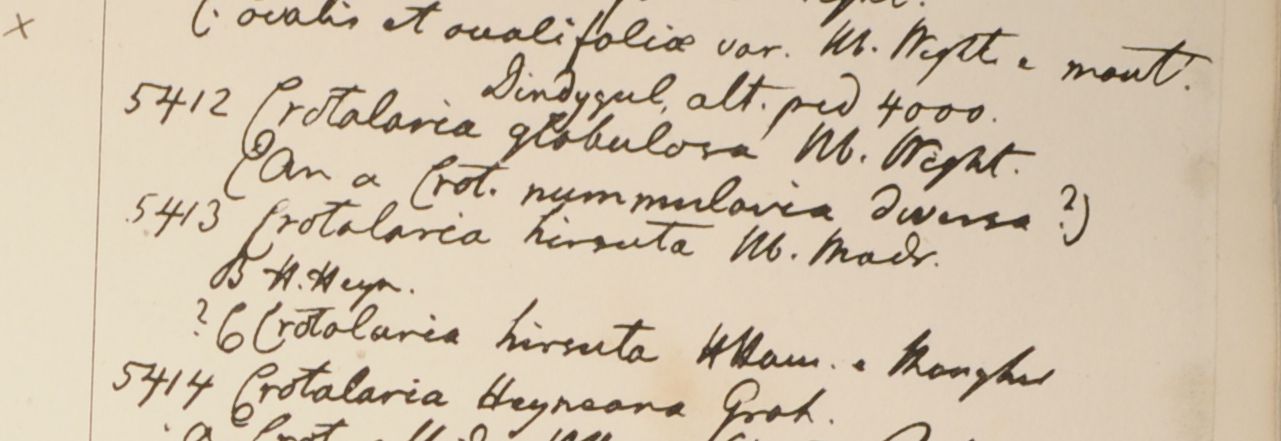 C. ovalis et ovalifoliæ var. Hb. Wight. e mont.
Dindygul, alt. ped 4000.
5412 Crotalaria globulosa Hb. Wight.
(An a Crot. nummularia diversa?)
5413 Crotalaria hirsuta Hb. Madr.
B H. Heyn.
? C Crotalaria hirsuta HHam. e Mongher
5414 Crotalaria Heyneana Grah.
Crot.